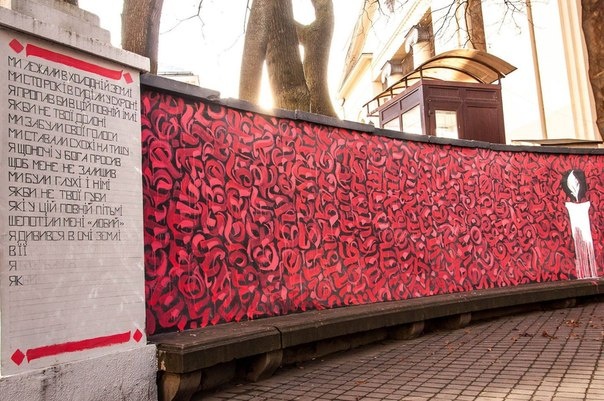 МИ ЛЕЖАЛИ В ХОЛОДНІЙ ЗЕМЛІ
МИ СТО РОКІВ СИДІЛИ У СХРОНІ
Я ПРОПИВ БИ В ЦІЙ ПОВНІЙ ІМЛІ
ЯКБИ НЕ ТВОЇ ДОЛОНІ
МИ ЗАБУЛИ СВОЇ ГОЛОСИ
МИ СТАВАЛИ СХОЖІ НА ТИШУ
Я ЩОНОЧІ У БОГА ПРОСИВ
ЩОБ МЕНЕ НЕ ЗАЛИШИВ
МИ БУЛИ ГЛУХІ І НІМІ
ЯКБИ НЕ ТВОЇ ГУБИ
ЯКІ У ЦІЙ ПОВНІЙ ПІТЬМІ
ШЕПОТІЛИ МЕНІ «ЛЮБИЙ»
Я ДИВИВСЯ В ОЧІ ЗЕМЛІ
В ЇЇ
Я
ЯК